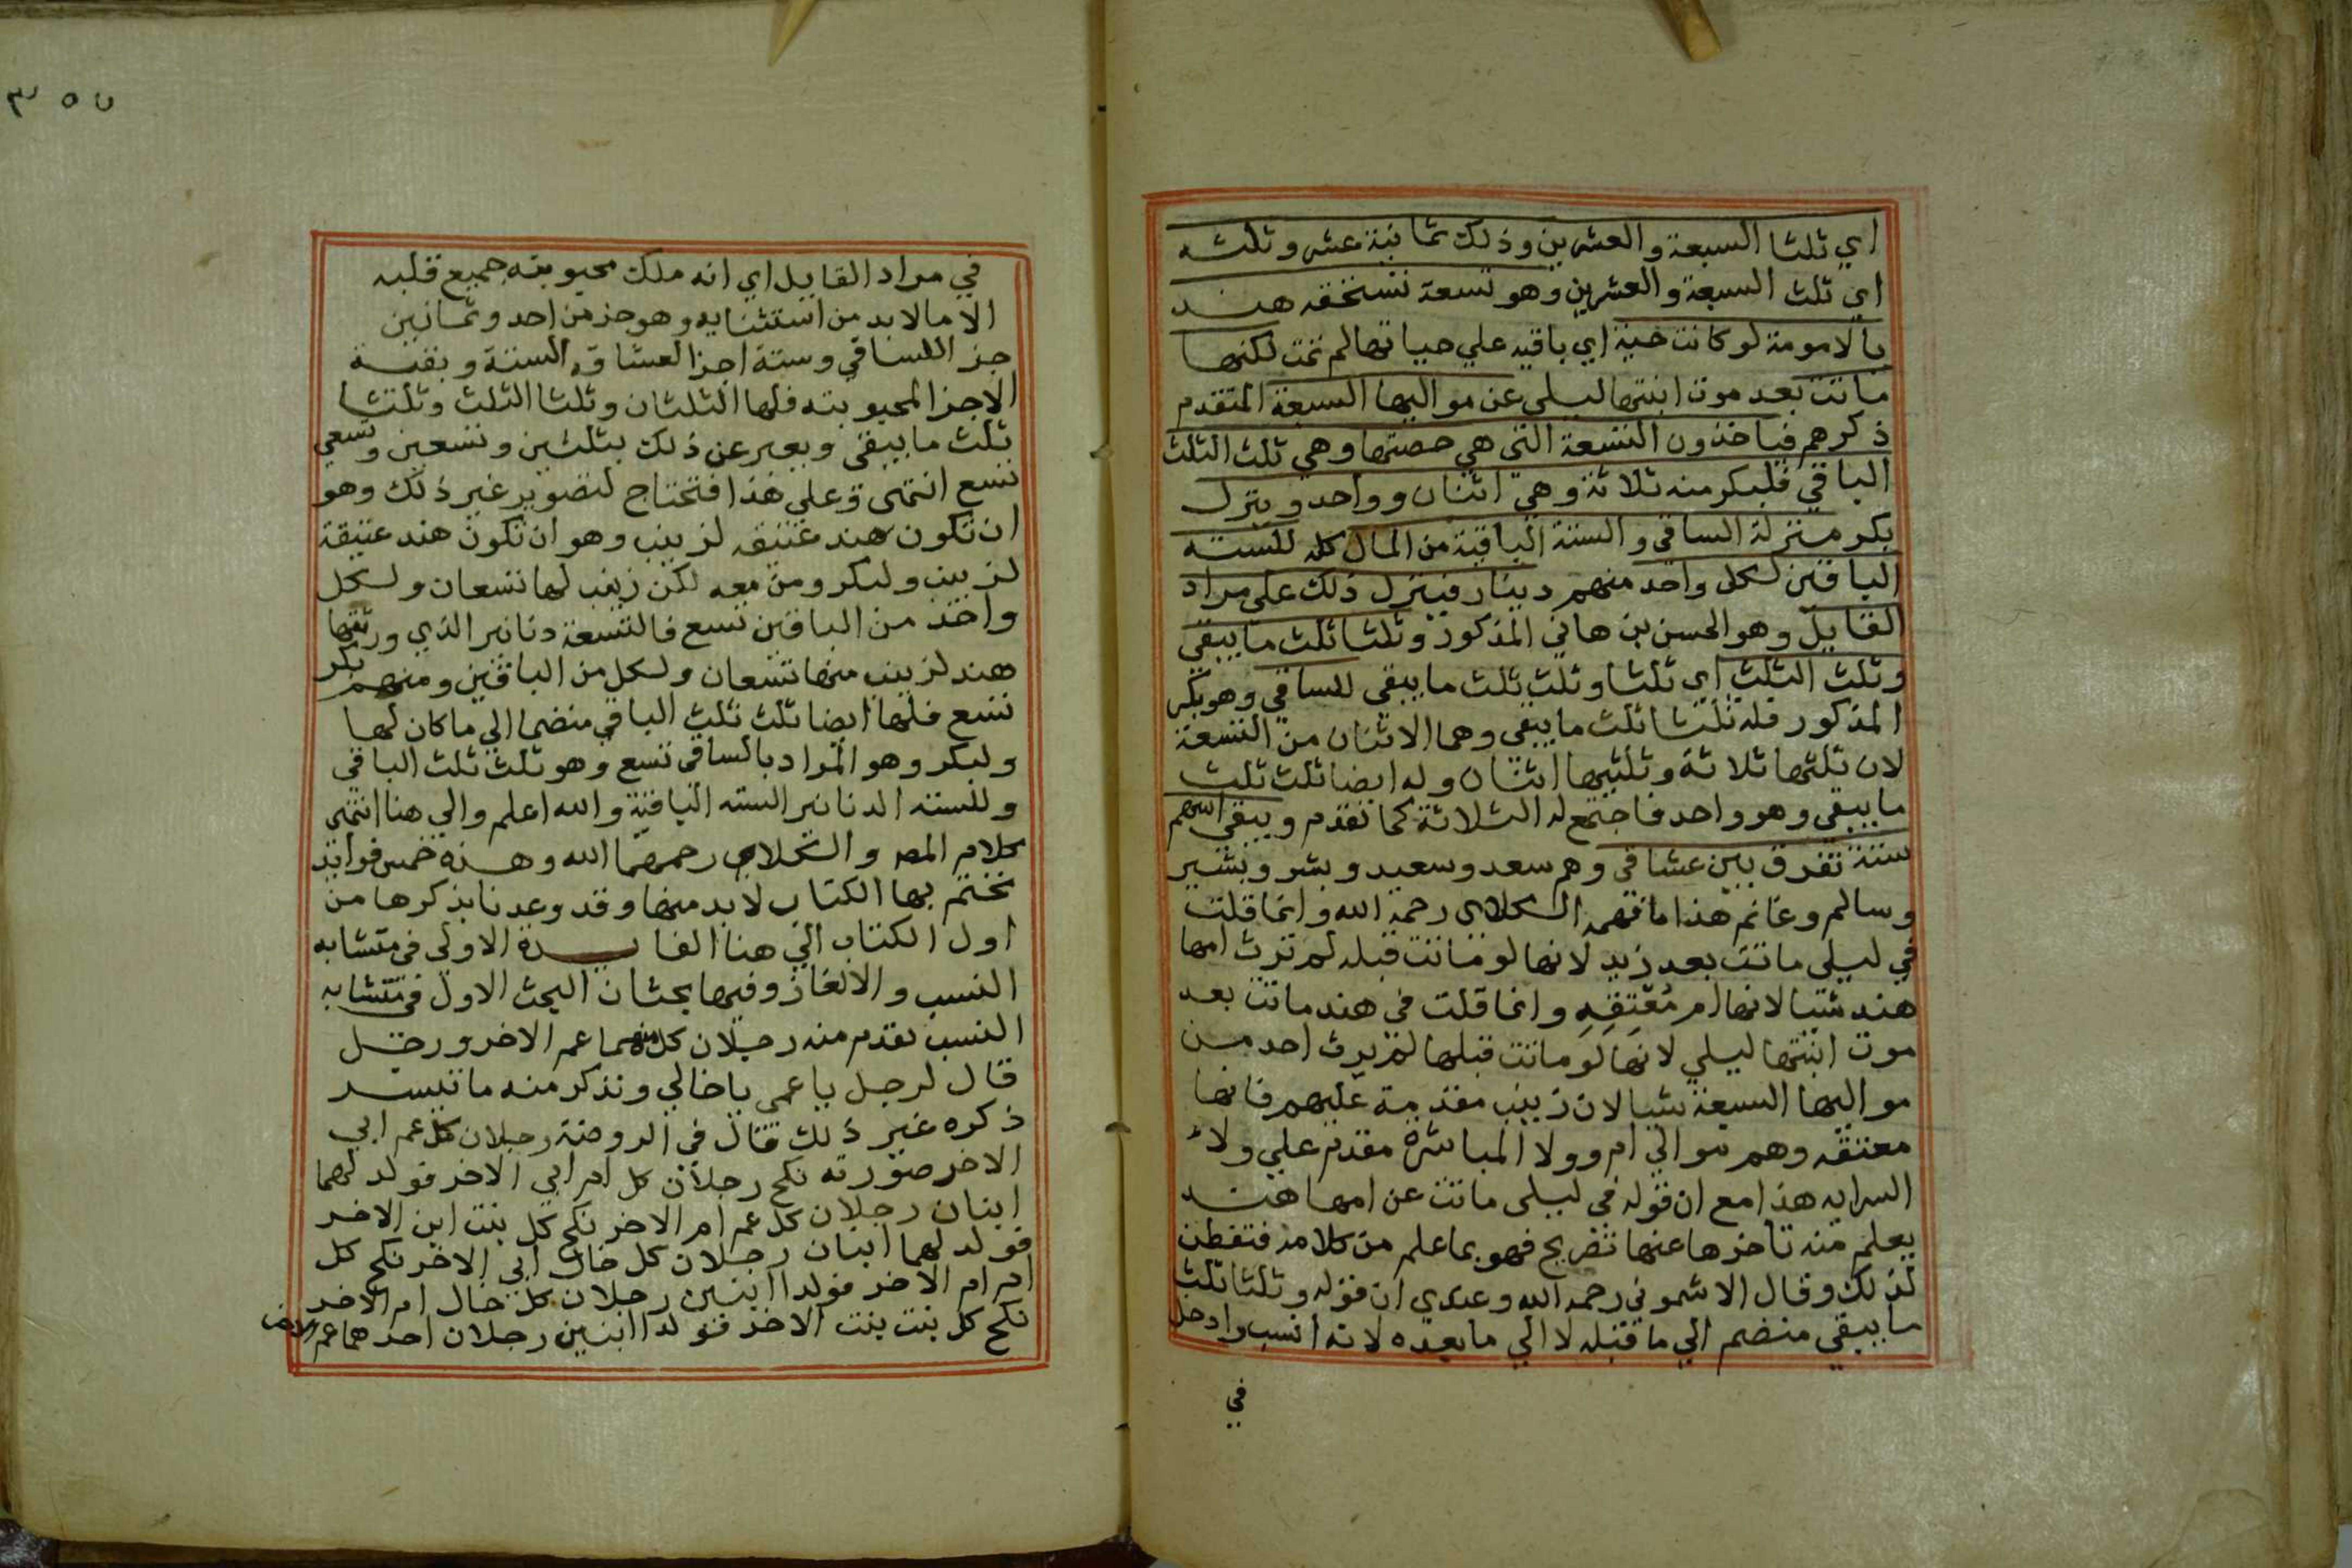 اي ثلثا السبعة والعشرين وذلك ثمانية عشر وثلثه
اي ثلث السبعة والعشرين وهو تسعة تستحقه هند
بالامومة لو كانت حية اي باقية علي حياتها لم تمت لكنها
ماتت بعد موت ابنتها ليلي عن مواليها السبعة المتقدم
ذكرهم فياخذون التسعة التي هي حصتها وهي ثلث الثلث
الباقي فلبكر منه ثلاثة وهي اثنان وواحد وينزل
بكر منزلة الساقي والستة الباقية من المال كله للسته
الباقين لكل واحد منهم دينار فينزل ذلك علي مراد
القايل وهو الحسن بن هاني المذكور وثلثا ثلث ما يبقي
وثلث الثلث اي ثلثا وثلث ثلث ما يبقي للساقي وهو بكر
المذكور فله ثلثا ثلث ما يبقي وهما الاثنان من التسعة
لان ثلثها ثلاثة وثلثيها اثنان وله ايضا ثلث ثلث
ما يبقي وهو واحد فاجتمع له الثلاثة كما تقدم ويبقي اسهم
ستة تفرق بين عشاقي وهم سعد وسعيد وبشر وبشير
وسالم وغانم هذا ما فهمه الكلاي رحمه الله وانما قلت
في ليلي ماتت بعد زيد لانها لو ماتت قبله لم ترث امها
هند شيا لانها ام مُعْتِقِهِ وانما قلت في هند ماتت بعد
موت ابنتها ليلي لانها لو ماتت قبلها لم يرث احد من
مواليها السبعة شيا لان زينب مقدمة عليهم فانها
معتقه وهم موالي ام وولا المباشرة مقدم علي ولاء
السرايه هذا مع ان قوله في ليلي ماتت عن امها هند
يعلم منه تاخرها عنها تصريح فهو بما علم من كلامه فتفطن
لذلك وقال الاشموني رحمه الله وعندي ان قوله وثلثا ثلث
ما يبقي منضم الي ما قبله لا الي ما بعده لانه انسب وادخل
في
٣٥٧
في مراد القايل اي انه ملك محبوبته جميع قلبه
الا ما لابد من استثنايه وهو جز من احد وثمانين
جز اللساقي وستة اجزا لعشاقه الستة وبقية
الاجزا لمحبوبته فلها الثلثان وثلثا الثلث وثلثا
ثلث ما يبقي ويعبر عن ذلك بثلثين وتسعين وتسعي
تسع انتهي وعلي هذا فتحتاج لتصوير غير ذلك وهو
ان تكون هند عتيقه لزينب وهو ان تكون هند عتيقة
لزينب ولبكر ومن معه لكن زينب لها تسعان ولكل
واحد من الباقين تسع فالتسعة دنانير الذي ورثتها
هند لزينب منها تسعان ولكل من الباقين ومنهم بكر
تسع فلها ايضا ثلث ثلث الباقي منضما الي ما كان لها
ولبكر وهو المراد بالساقي تسع وهو ثلث ثلث الباقي
وللسته الدنانير السته الباقية والله اعلم والي هنا انتهي
كلام المص والكلاي رحمهما الله وهذه خمس فوايد
نختم بها الكتاب لابد منها وقد وعدنا بذكرها من
اول الكتاب الي هنا الفايدة الاولي في متشابه
النسب والالغاز وفيها بحثان البحث الاول في متشابه
النسب تقدم منه رجلان كل منهما عم الاخر ورجل
قال لرجل يا عمي يا خالي ونذكر منه ما تيسر
ذكره غير ذلك قال في الروضة رجلان كل عم ابي
الاخر صورته نكح رجلان كل ام ابي الاخر فولد لهما
ابنان رجلان كل عم ام الاخر نكح كل بنت ابن الاخر
فولد لهما ابنان رجلان كل خال ابي الاخر نكح كل
ام ام الاخر فولدا ابنين رجلان كل خال ام الاخر
نكح كل بنت بنت الاخر فولدا ابنين رجلان احدهما عم الاخر